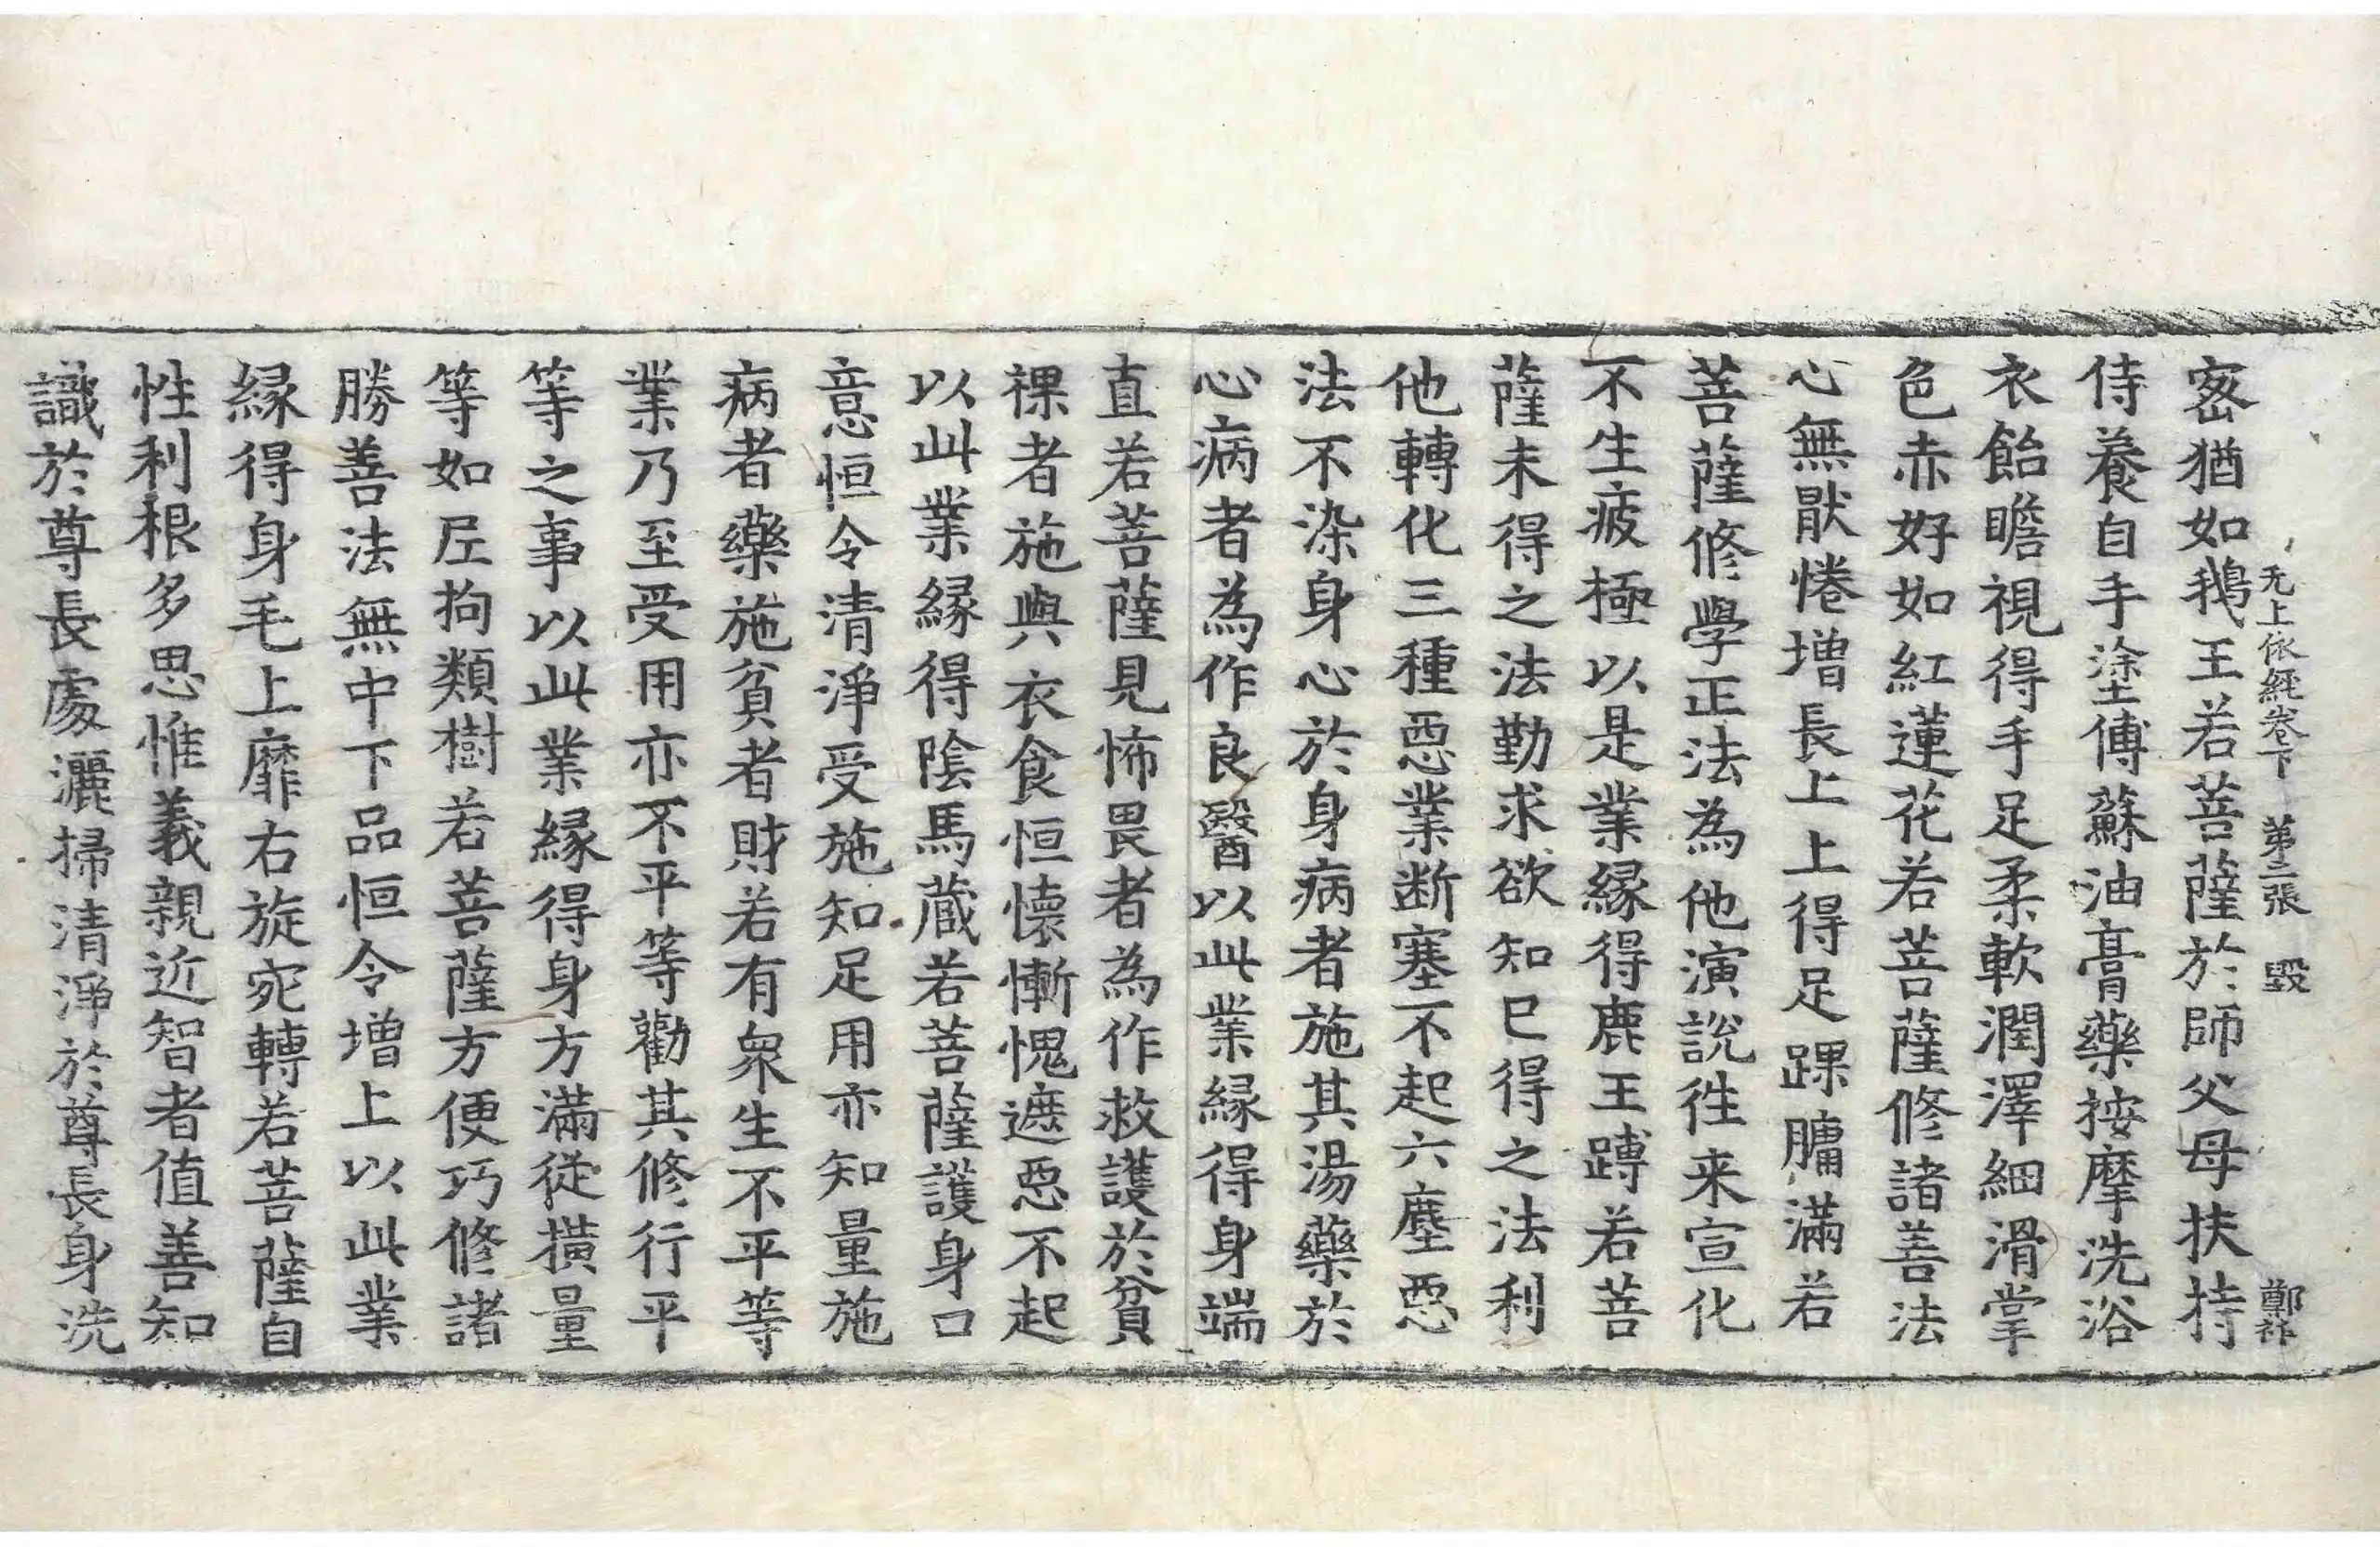 无上依經卷下 第二張 毀 鄭祚
宻猶如鵝王若菩薩於師父母扶持
侍養自手塗傅蘇油膏藥按摩洗浴
衣飴瞻視得手足柔軟潤澤細滑掌
色赤好如紅蓮花若菩薩修諸善法
心無猒惓增長上上得足踝𦟛滿若
菩薩修學正法為他演說徃来宣化
不生疲極以是業緣得鹿王蹲若菩
薩未得之法勤求欲知已得之法利
他轉化三種惡業断塞不起六塵惡
法不染身心於身病者施其湯藥於
心病者為作良醫以此業緣得身端
直若菩薩見怖畏者為作救護於貧
裸者施與衣食恒懷慚愧遮惡不起
以此業緣得陰馬蔵若菩薩護身口
意恒令清淨受施知足用亦知量施
病者藥施貧者財若有衆生不平等
業乃至受用亦不平等勸其修行平
等之事以此業緣得身方滿從橫量
等如尼拘類樹若菩薩方便巧修諸
勝善法無中下品恒令增上以此業
緣得身毛上靡右旋宛轉若菩薩自
性利根多思惟義親近智者值善知
識於尊長處灑掃清淨於尊長身洗